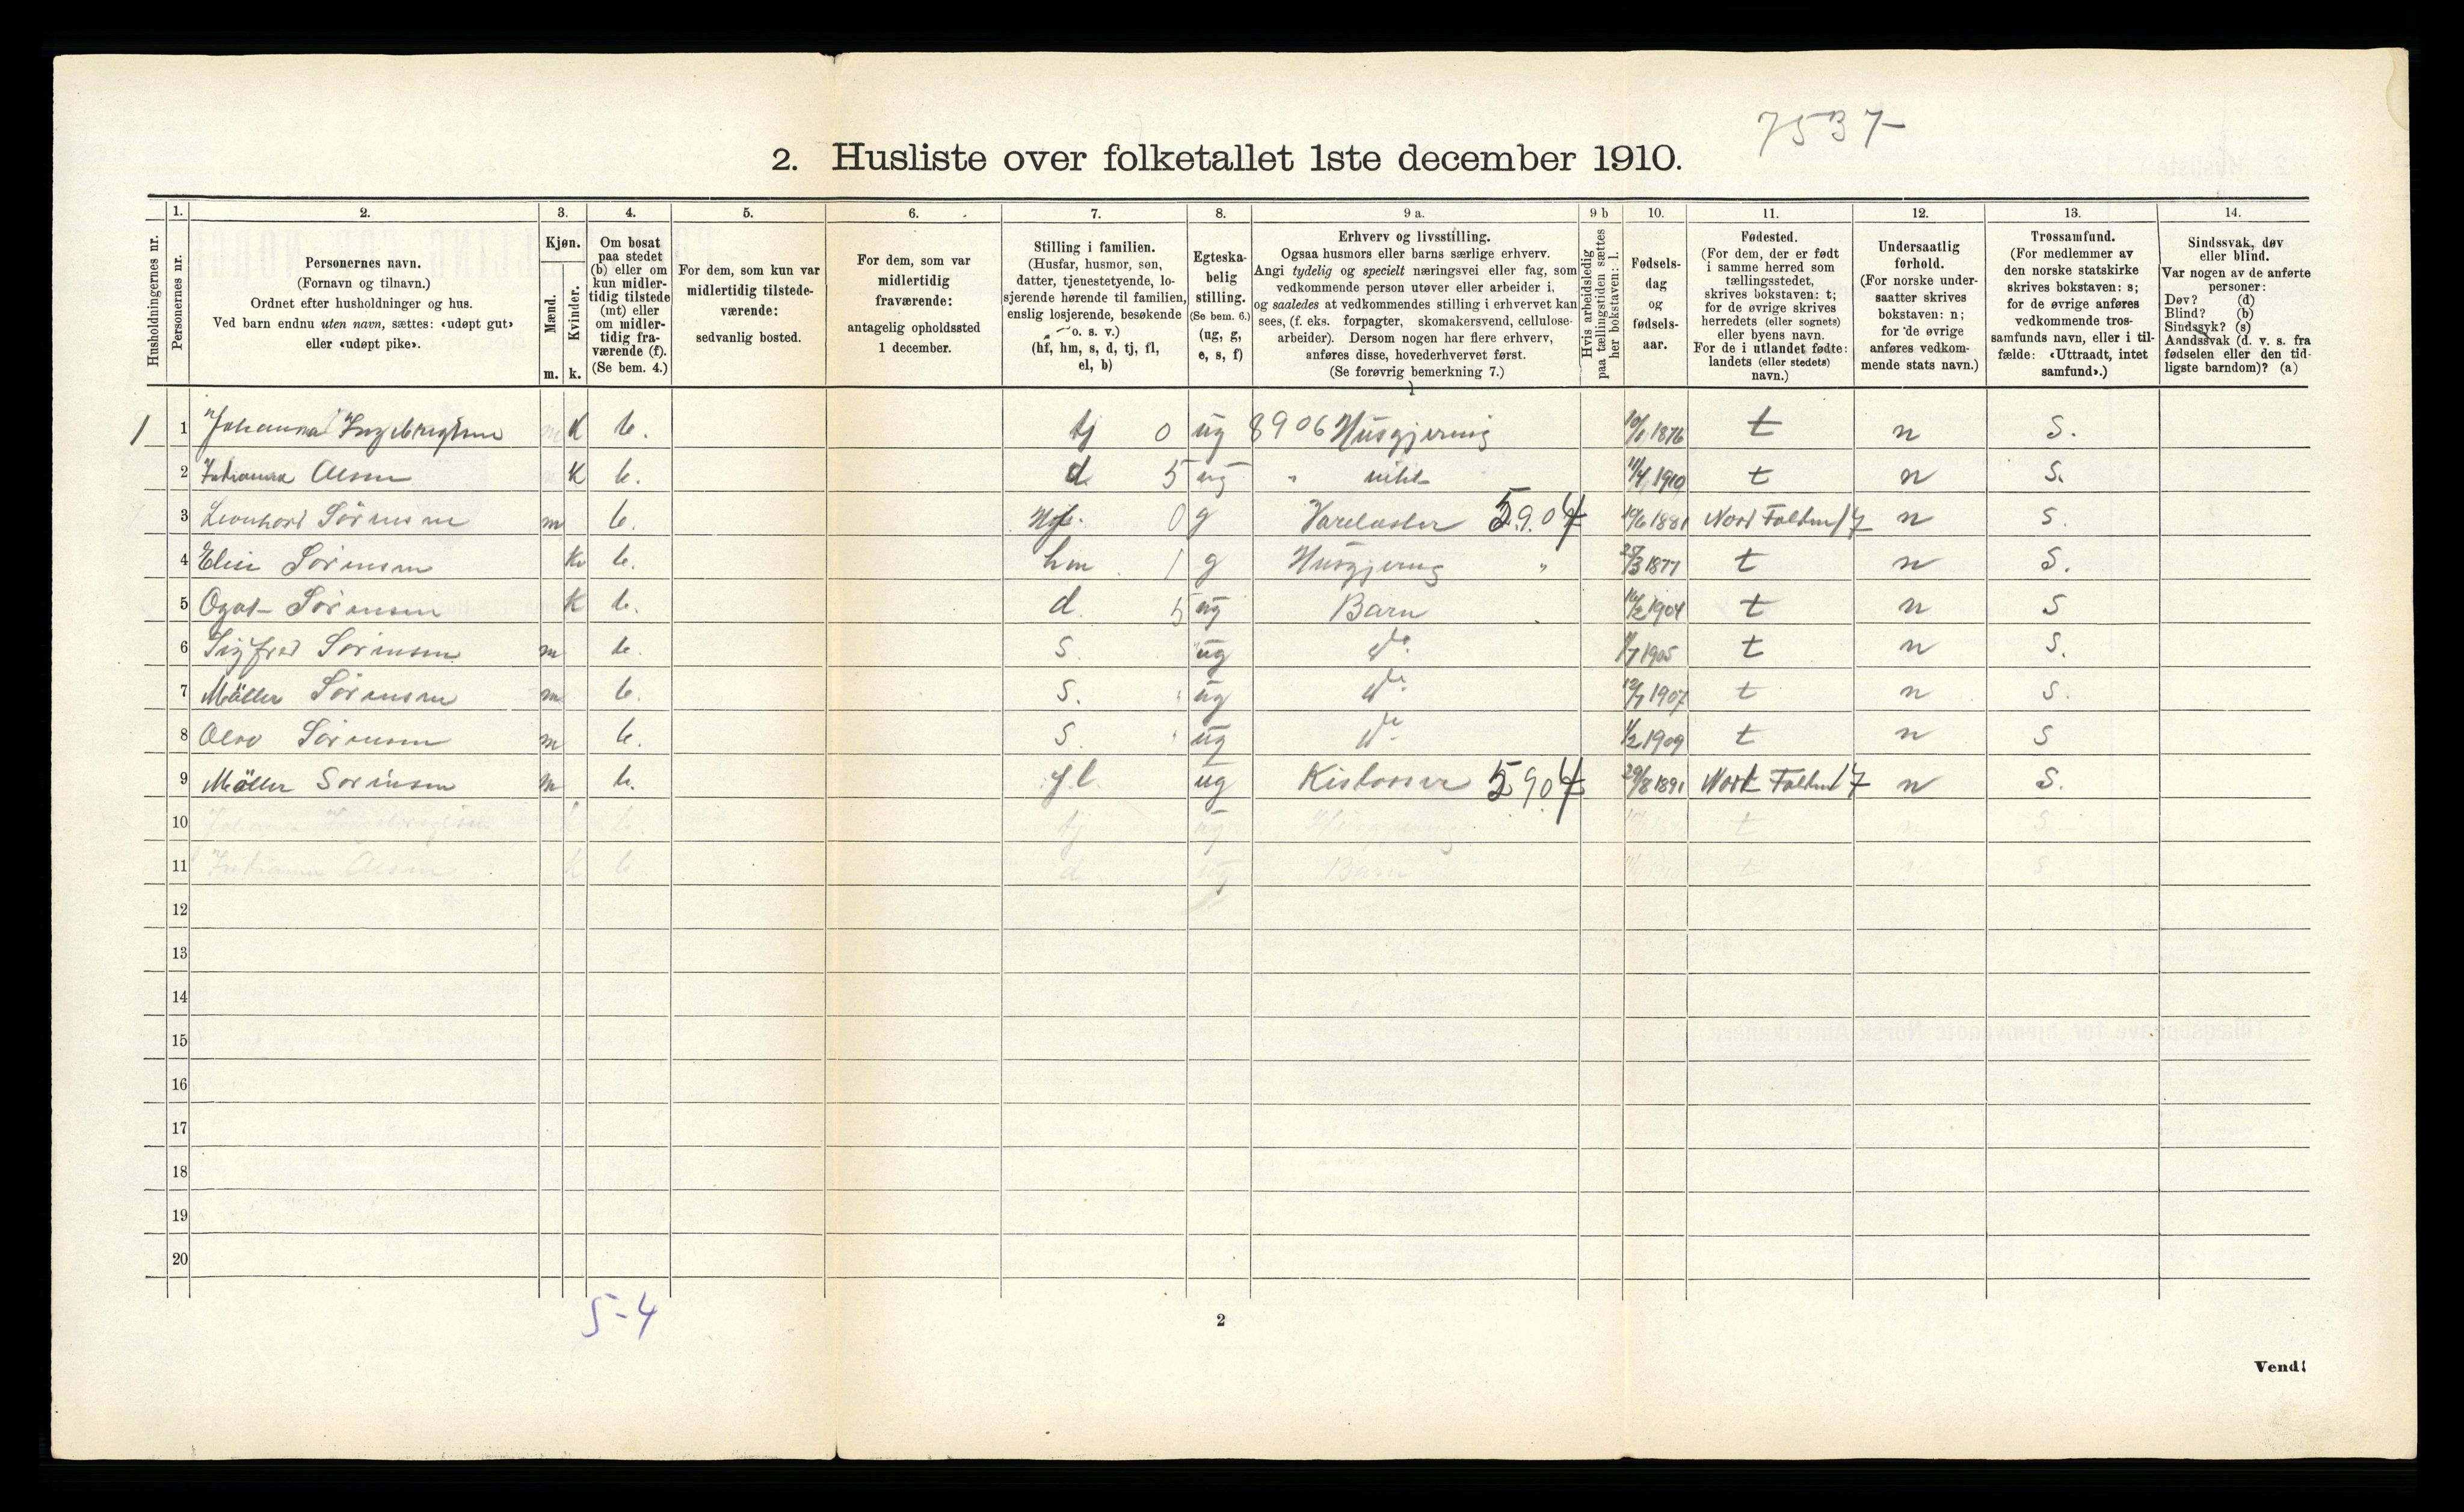 7537
2. Husliste over folketallet 1ste december 1910.
Husholdningernes nr.
1.
Personernes nr.
2.
Personernes navn.
(Fornavn og tilnavn.)
Ordnet efter husholdninger og hus.
Ved barn endnu uten navn, sættes: «udøpt gut»
eller «udøpt pike».
3.
Kjøn.
Mænd.
Kvinder.
m. k.
4.
Om bosat
paa stedet
(b) eller om
kun midler-
tidig tilstede
(mt) eller
om midler-
tidig fra-
værende (f).
(Se bem. 4.)
5.
For dem, som kun var
midlertidig tilstede-
værende:
sedvanlig bosted.
6.
For dem, som var
midlertidig
fraværende:
antagelig opholdssted
1 december.
7.
Stilling i familien.
(Husfar, husmor, søn,
datter, tjenestetyende, lo-
sjerende hørende til familien,
enslig losjerende, besøkende
o. s. v.)
(hf, hm, s, d, tj, fl,
el, b)
8.
Egteska-
belig
stilling.
(Se bem. 6.)
(ug, g,
e, s, f)
9 a.
Erhverv og livsstilling.
Ogsaa husmors eller barns særlige erhverv.
Angi tydelig og specielt næringsvei eller fag, som
vedkommende person utøver eller arbeider i,
og saaledes at vedkommendes stilling i erhvervet kan
sees, (f. eks. forpagter, skomakersvend, cellulose-
arbeider). Dersom nogen har flere erhverv,
anføres disse, hovederhvervet først.
(Se forøvrig bemerkning 7.)
9 b
Hvis arbeidsledig
paa tællingstiden sættes
her bokstaven: l.
10.
Fødsels-
dag
og
fødsels-
aar.
11.
Fødested.
(For dem, der er født
i samme herred som
tællingsstedet,
skrives bokstaven: t;
for de øvrige skrives
herredets (eller sognets)
eller byens navn.
For de i utlandet fødte:
landets (eller stedets)
navn.)
12.
Undersaatlig
forhold.
(For norske under-
saatter skrives
bokstaven: n;
for de øvrige
anføres vedkom-
mende stats navn.)
13.
Trossamfund.
(For medlemmer av
den norske statskirke
skrives bokstaven: s;
for de øvrige anføres
vedkommende tros-
samfunds navn, eller i til-
fælde: «Uttraadt, intet
samfund».)
14.
Sindssvak, døv
eller blind.
Var nogen av de anførte
personer:
Døv? (d)
Blind? (b)
Sindssyk? (s)
Aandssvak (d. v. s. fra
fødselen eller den tid-
ligste barndom)? (a)
1 1 Johanna Ingebrigtsen K b. tj 0 ug 8906 Husgjerning 10/1 1876 t n S.
2 Olsen K b. d 5 ug 11/4 1910 t n S.
3 Leonhard Sörensen m b. Hf. 0 g 5904 19/6 1881 Nord Folden 17 n S.
4 Elise Sörensen K b. hm 1 g Husgjerning " 27/3 1877 t n S.
5 Ogot Sörensen K b. d. 5 ug Barn 16/2 1904 t n S
6 Sigfred Sörensen m b. S. ug do 1905 t n S.
7 Möller Sörensen m b. S. ug do 12/7 1907 t n S.
8 Olav Sörensen m b. S. ug do 1/2 1909 t n S
9 Möller Sörensen m b. fl. ug 5904 29/8 1891 Nord Folden 17 n S.
10 Johanna Ingebrigtsen k b. tj ug Husgjerning t n S
11 Olsen k b d ug Barn t n S
12
13
14
15
16
17
18
19
20
5-4
2
Vend!